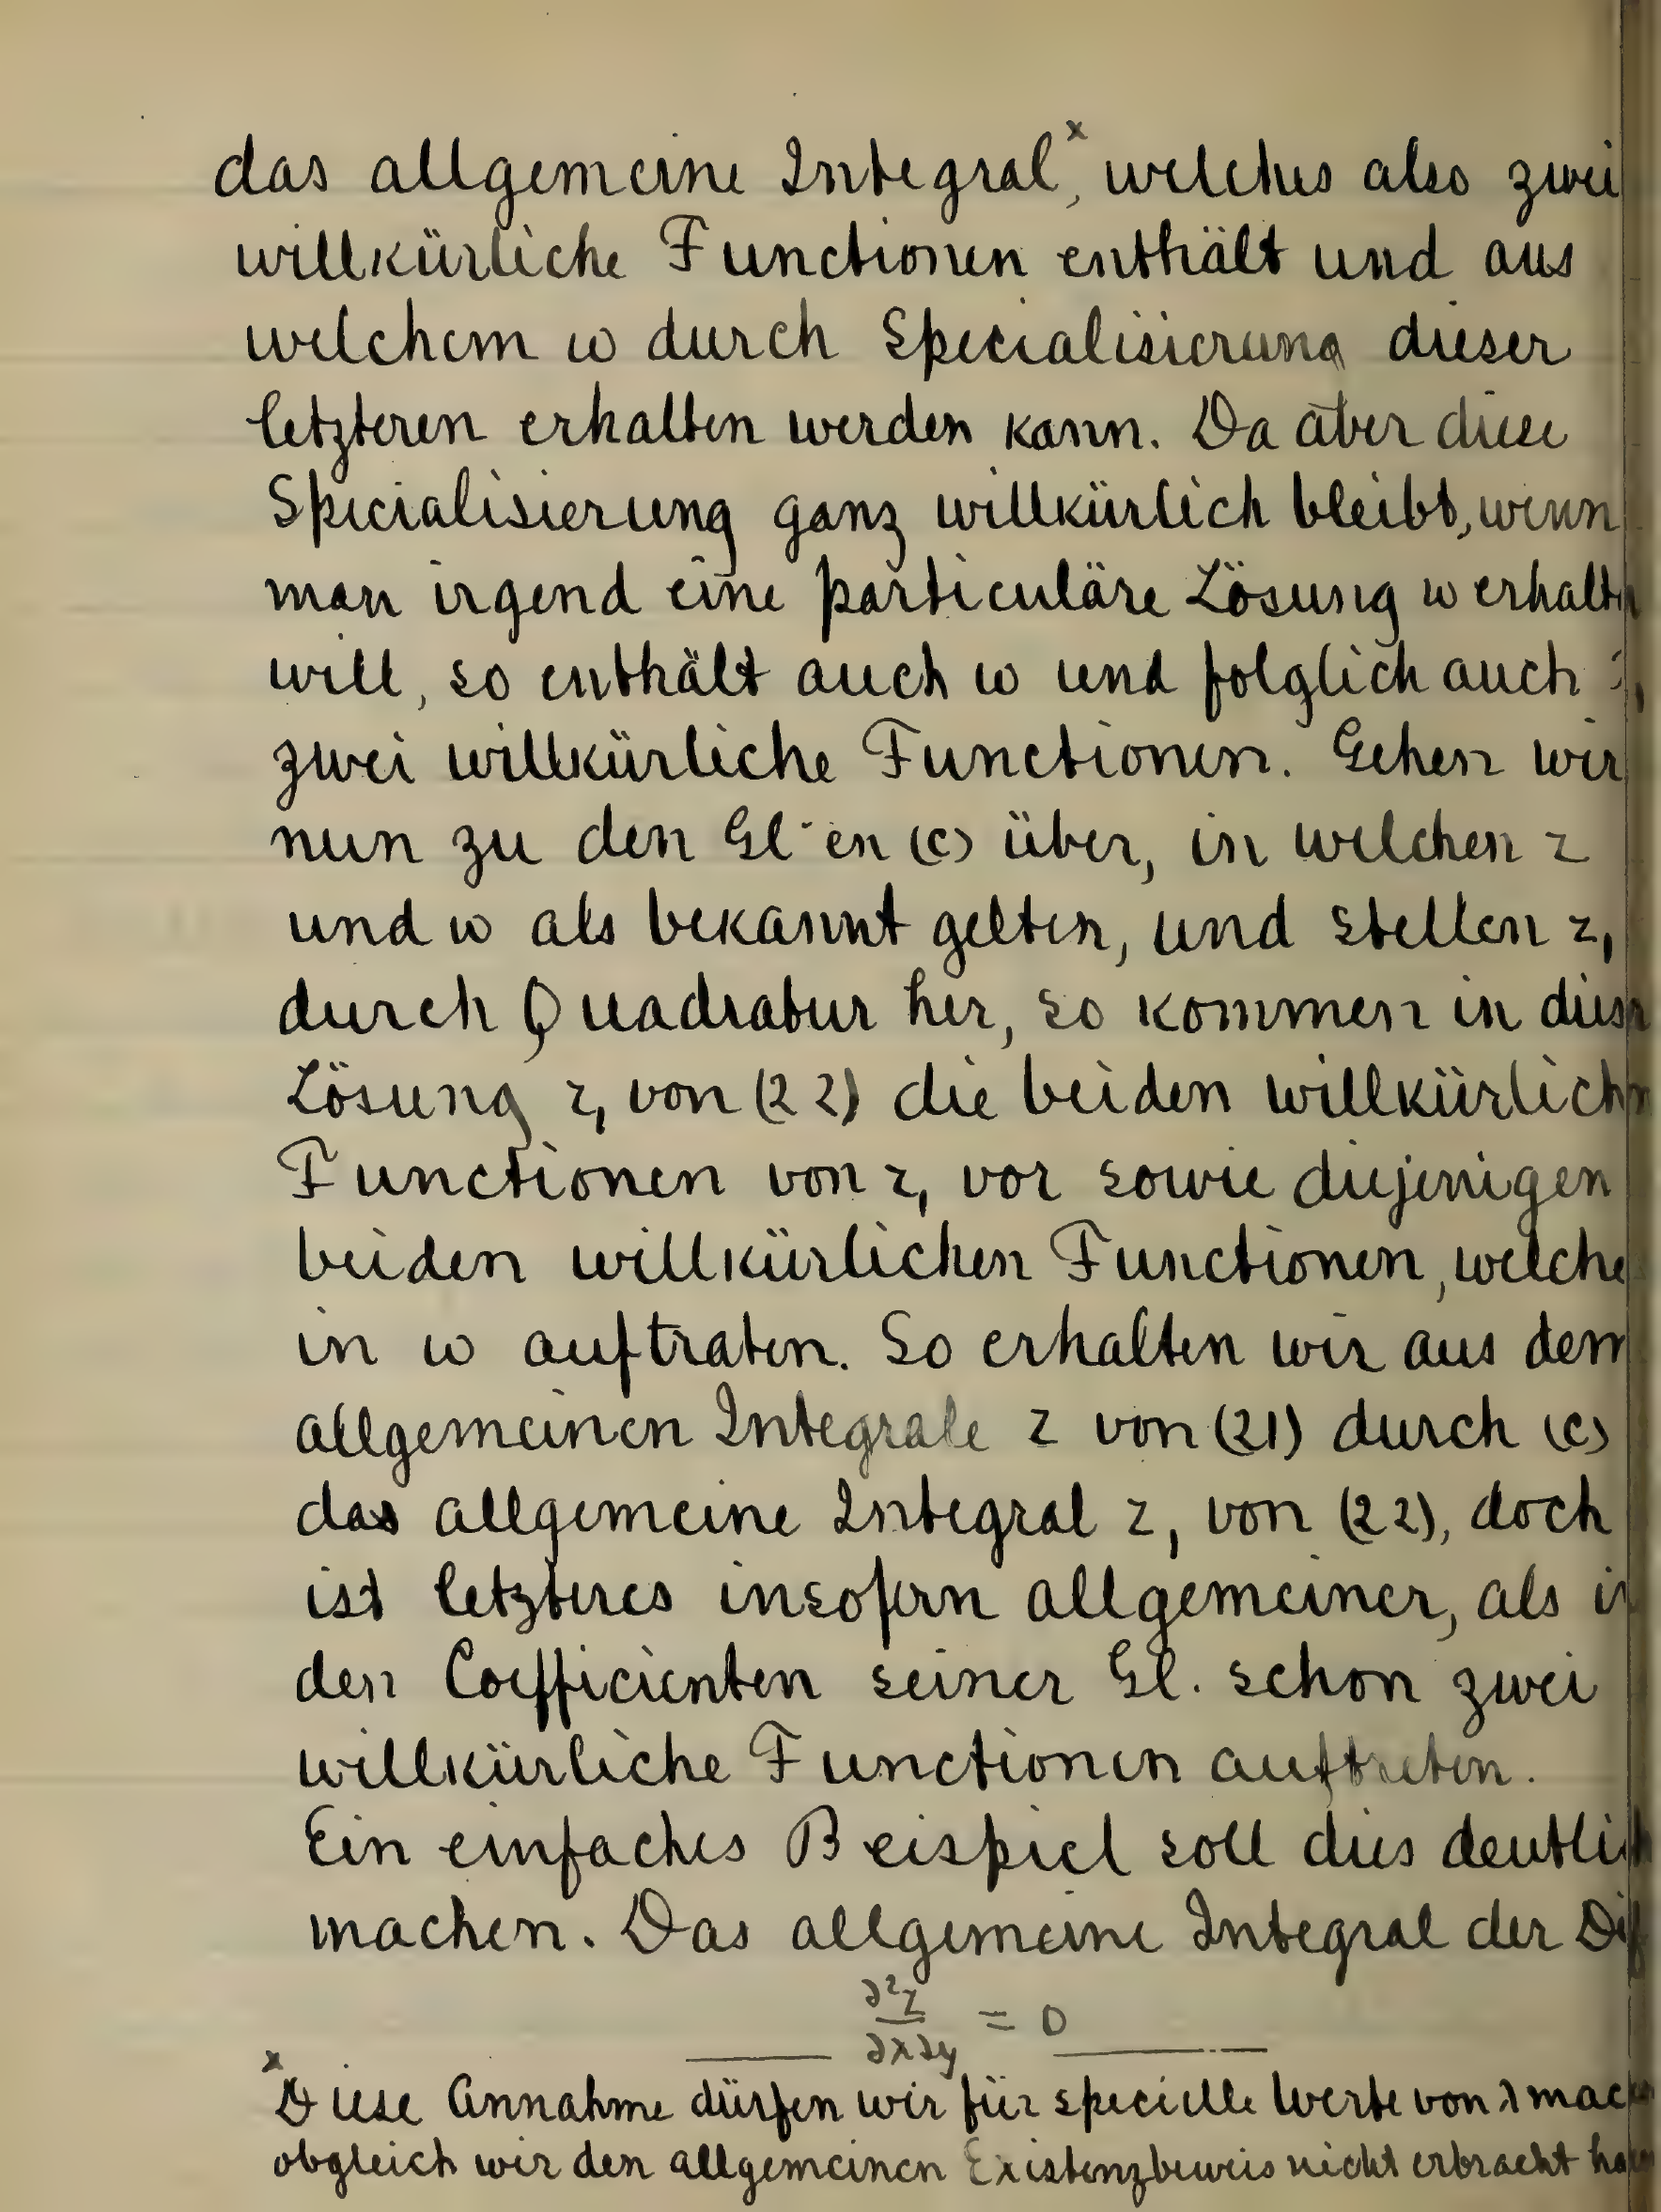 das allgemeine Integral ˣ, welches also zwei
willkürliche Functionen enthält und aus
welchem w durch Specialisierung dieser
letzteren erhalten werden kann. Da aber diese
Specialisierung ganz willkürlich bleibt, wenn
man irgend eine particuläre Lösung w erhalten
will, so enthält auch w und folglich auch
zwei willkürliche Functionen. Gehen wir
nun zu den Gl-en (c) über, in welchen z
und w als bekannt gelten, und stellen z₁
durch Quadratur her, so kommen in dieser
Lösung z₁ von (22) die beiden willkürlichen
Functionen von z, vor sowie diejenigen
beiden willkürlichen Functionen, welche
in w auftraten. So erhalten wir aus dem
allgemeinen Integrale z von (21) durch (c)
das allgemeine Integral z₁ von (22), doch
ist letzteres insofern allgemeiner, als in
den Coefficienten seiner Gl. schon zwei
willkürliche Functionen auftreten.
Ein einfaches Beispiel soll dies deutlich
machen. Das allgemeine Integral der Dif
∂²z/∂x∂y = 0
ˣ Diese Annahme dürfen wir für specielle Werte von λ machen
obgleich wir den allgemeinen Existenzbeweis nicht erbracht haben